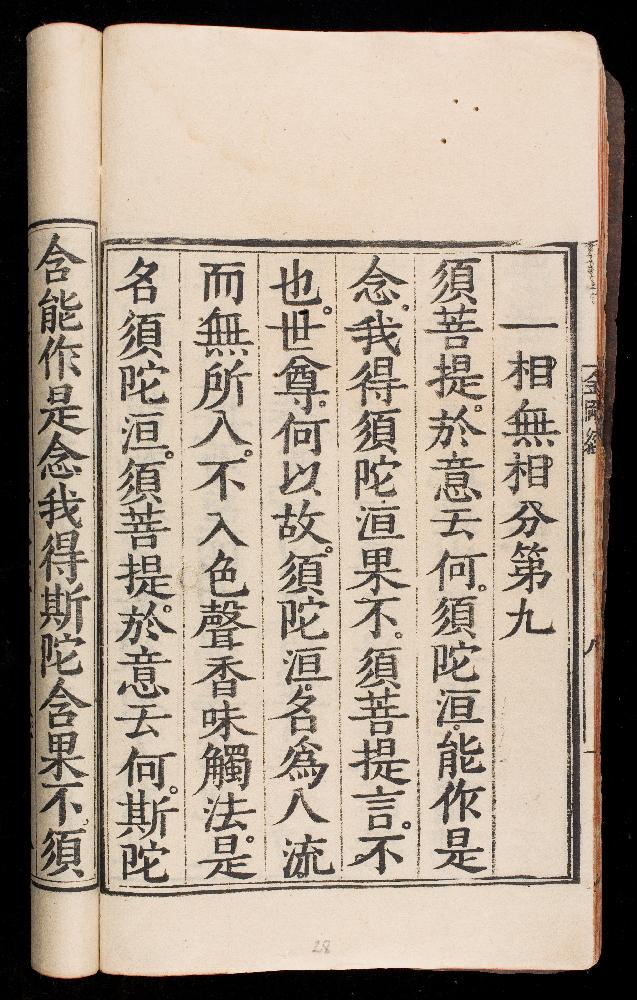 金剛經
八
一相無相分第九
須菩提。於意云何。須陀洹。能作是
念。我得須陀洹果不。須菩提言。不
也。世尊。何以故。須陀洹。名爲入流。
而無所入。不入色聲香味觸法。是
名須陀洹。須菩提。於意云何。斯陀
含能作是念我得斯陀含果不。須
28